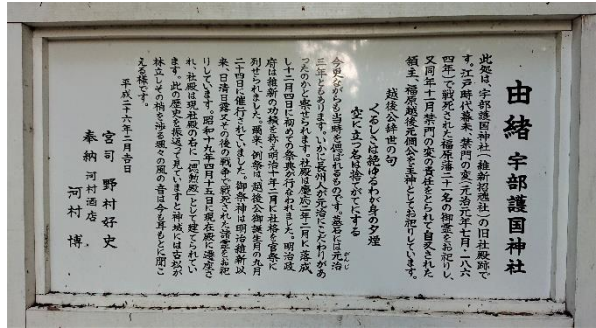 由緒 宇部護国神社
此処は、宇部護国神社(維新招魂社)の旧社殿跡で
す。江戸時代幕末、禁門の変(元治元年七月・一八六
四年)で戦死された福原藩二十一名の御霊をお祀りし、
又同年十一月禁門の変の責任をとられて自刃された
領主、福原越後元僴公を主神としてお祀りしています。
越後公辞世の句
くるしさは絶ゆるわが身の夕煙
空に立つ名は捨てがてにする
今更ながらも当時を偲ばれるものです。墓石には元治
三年ともあります。いかに長州人が元治にこだわりがあ
ったのかと察せられます。社殿は慶応二年二月に落成
し十二月四日に初めての祭典が行なわれました。明治政
府は維新の功績を称え明治十年二月に社格を官祭に
列せられました。爾来、例祭は、越後公御誕生月の九月
二十四日に催行されていました。御祭神は明治維新以
来、日清日露又その後の戦争で戦死された諸霊をお祀
りしています。昭和十九年四月十五日に現在殿に遷座さ
れ、社殿は現社殿の右に「勲徳殿」として建てられてい
ます。此の歴史を振返って見ていますと神域には古松が
林立しその梢を渉る颯々の風の音は今も耳もとに聞こ
える様です。
平成二十六年二月吉日
宮司 野村好史
奉納 河村酒店
河村 博